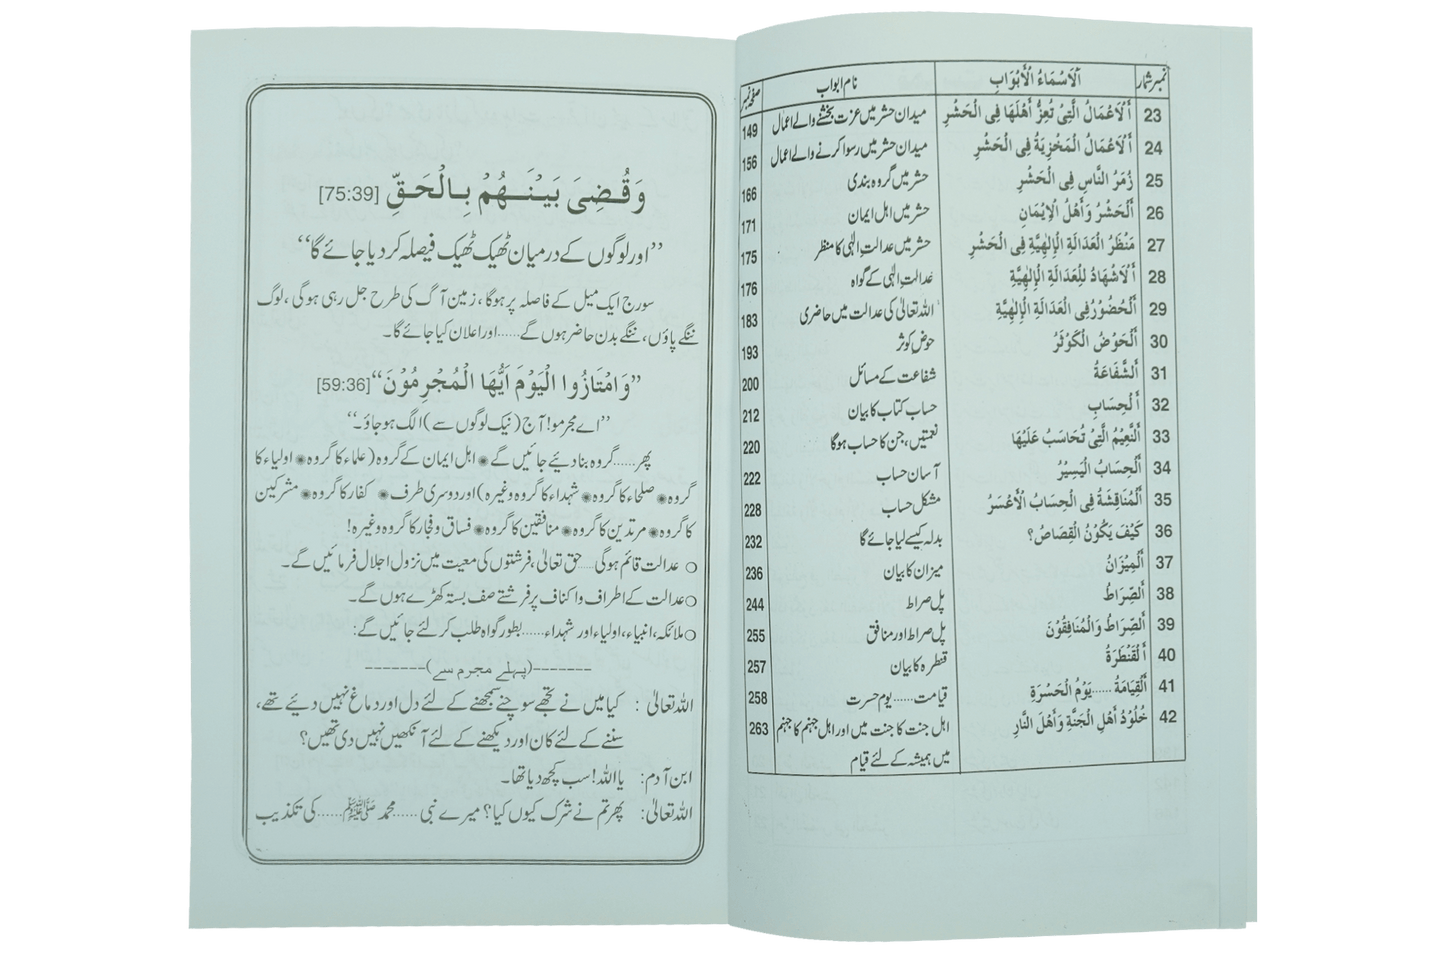 نمبر شمار اَلْاَسْمَاءُ الْأَبْوَابِ نام ابواب صفحہ نمبر
23 اَلْاَعْمَالُ الَّتِيْ تُعِزُّ اَهْلَهَا فِی الْحَشْرِ میدان حشر میں عزت بخشنے والے اعمال 149
24 اَلْاَعْمَالُ الْمَخْزِيَةُ فِی الْحَشْرِ میدان حشر میں رسوا کرنے والے اعمال 156
25 زُمَرُ النَّاسِ فِی الْحَشْرِ حشر میں گروہ بندی 166
26 اَلْحَشْرُ وَاَهْلُ الْاِيْمَانِ حشر میں اہل ایمان 171
27 مَنْظَرُ الْعَدَالَةِ الْاِلٰهِيَّةِ فِی الْحَشْرِ حشر میں عدالتِ الٰہی کا منظر 175
28 اَلْاَشْهَادُ لِلْعَدَالَةِ الْاِلٰهِيَّةِ عدالتِ الٰہی کے گواہ 176
29 اَلْحُضُوْرُ فِی الْعَدَالَةِ الْاِلٰهِيَّةِ اللہ تعالیٰ کی عدالت میں حاضری 183
30 اَلْحَوْضُ الْكَوْثَرُ حوضِ کوثر 193
31 اَلشَّفَاعَةُ شفاعت کے مسائل 200
32 اَلْحِسَابِ حساب کتاب کا بیان 212
33 اَلنَّعِيْمُ الَّتِيْ تُحَاسَبُ عَلَيْهَا نعمتیں، جن کا حساب ہوگا 220
34 اَلْحِسَابُ الْيَسِيْرُ آسان حساب 222
35 اَلْمُنَاقِشَةُ فِی الْحِسَابُ الْاَعْسَرُ مشکل حساب 228
36 كَيْفَ يَكُوْنُ الْقِصَاصُ؟ بدلہ کیسے لیا جائے گا 232
37 اَلْمِيْزَانُ میزان کا بیان 236
38 اَلصِّرَاطُ پل صراط 244
39 اَلصِّرَاطُ وَالْمُنَافِقُوْنَ پل صراط اور منافق 255
40 اَلْقَنْطَرَةُ قنطرہ کا بیان 257
41 اَلْقِيَامَةُ ...... يَوْمُ الْحَسْرَةِ قیامت ...... یوم حسرت 258
42 خُلُوْدُ اَهْلِ الْجَنَّةِ وَاَهْلَ النَّارِ اہل جنت کا جنت میں اور اہل جہنم کا جہنم 263
میں ہمیشہ کے لئے قیام
وَقُضِیَ بَیْنَهُمْ بِالْحَقِّ [75:39]
’’اور لوگوں کے درمیان ٹھیک ٹھیک فیصلہ کر دیا جائے گا‘‘
سورج ایک میل کے فاصلہ پر ہوگا، زمین آگ کی طرح جل رہی ہوگی، لوگ
ننگے پاؤں، ننگے بدن حاضر ہوں گے ...... اور اعلان کیا جائے گا۔
’’وَامْتَازُوا الْیَوْمَ اَیُّهَا الْمُجْرِمُوْنَ‘‘ [59:36]
’’اے مجرمو! آج (نیک لوگوں سے) الگ ہو جاؤ۔‘‘
پھر ...... گروہ بنا دیئے جائیں گے ◉ اہل ایمان کے گروہ (علماء کا گروہ ◉ اولیاء کا
گروہ ◉ صلحاء کا گروہ ◉ شہداء کا گروہ وغیرہ) اور دوسری طرف ◉ کفار کا گروہ ◉ مشرکین
کا گروہ ◉ مرتدین کا گروہ ◉ منافقین کا گروہ ◉ فساق و فجار کا گروہ وغیرہ!
○ عدالت قائم ہوگی ...... حق تعالیٰ، فرشتوں کی معیت میں نزول اجلال فرمائیں گے۔
○ عدالت کے اطراف و اکناف پر فرشتے صف بستہ کھڑے ہوں گے۔
○ ملائکہ، انبیاء، اولیاء اور شہداء ...... بطور گواہ طلب کر لئے جائیں گے:
-------(پہلے مجرم سے)-------
اللہ تعالیٰ : کیا میں نے تجھے سوچنے سمجھنے کے لئے دل اور دماغ نہیں دیئے تھے،
سننے کے لئے کان اور دیکھنے کے لئے آنکھیں نہیں دی تھیں؟
ابن آدم: یا اللہ! سب کچھ دیا تھا۔
اللہ تعالیٰ: پھر تم نے شرک کیوں کیا؟ میرے نبی ...... محمد ﷺ ...... کی تکذیب